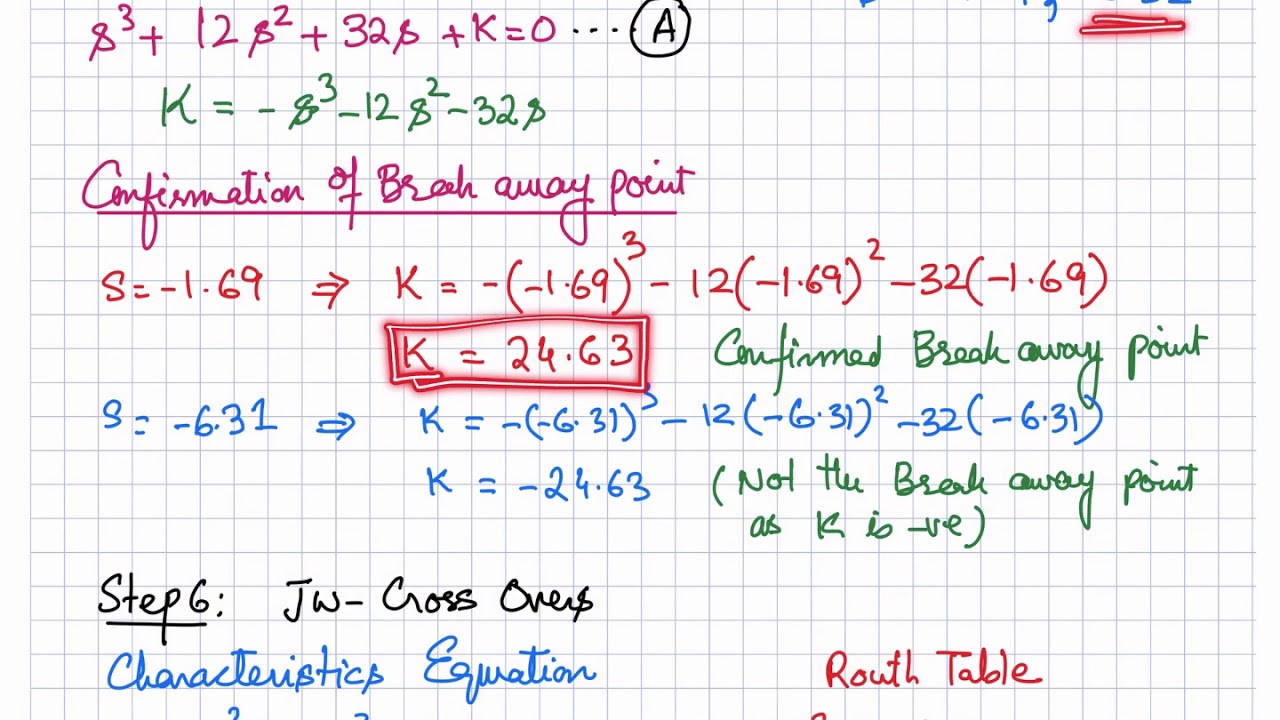 s³ + 12s² + 32s + K = 0 .... (A)
K = - s³ - 12s² - 32s
Confirmation of Break away point
S = -1.69 ⇒ K = -(-1.69)³ - 12(-1.69)² - 32(-1.69)
K = 24.63 Confirmed Break away point
S = -6.31 ⇒ K = -(-6.31)³ - 12(-6.31)² - 32(-6.31)
K = -24.63 (Not the Break away point
as K is -ve)
Step 6: Jw- Cross Overs
Characteristics Equation Routh Table